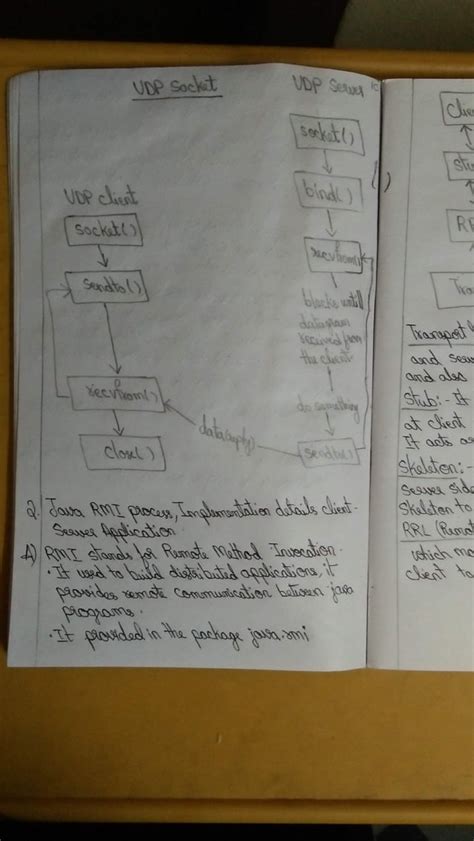 UDP Socket
UDP Server
socket()
bind()
recvfrom()
blocks untill
datagram
received from
the client
do something
sendto()
UDP client
socket()
sendto()
recvfrom()
close()
data(reply)
2. Java RMI process, Implementation details client-
Server Application.
A) RMI stands for Remote Method Invocation.
· It used to build distributed applications, it
provides remote communication between java
programs.
· It provided in the package java.rmi
Transport
and
and also
Stub:- It
at client
It acts as
Skeleton:-
Server side
Skeleton to
RRL (Remot
which
client to